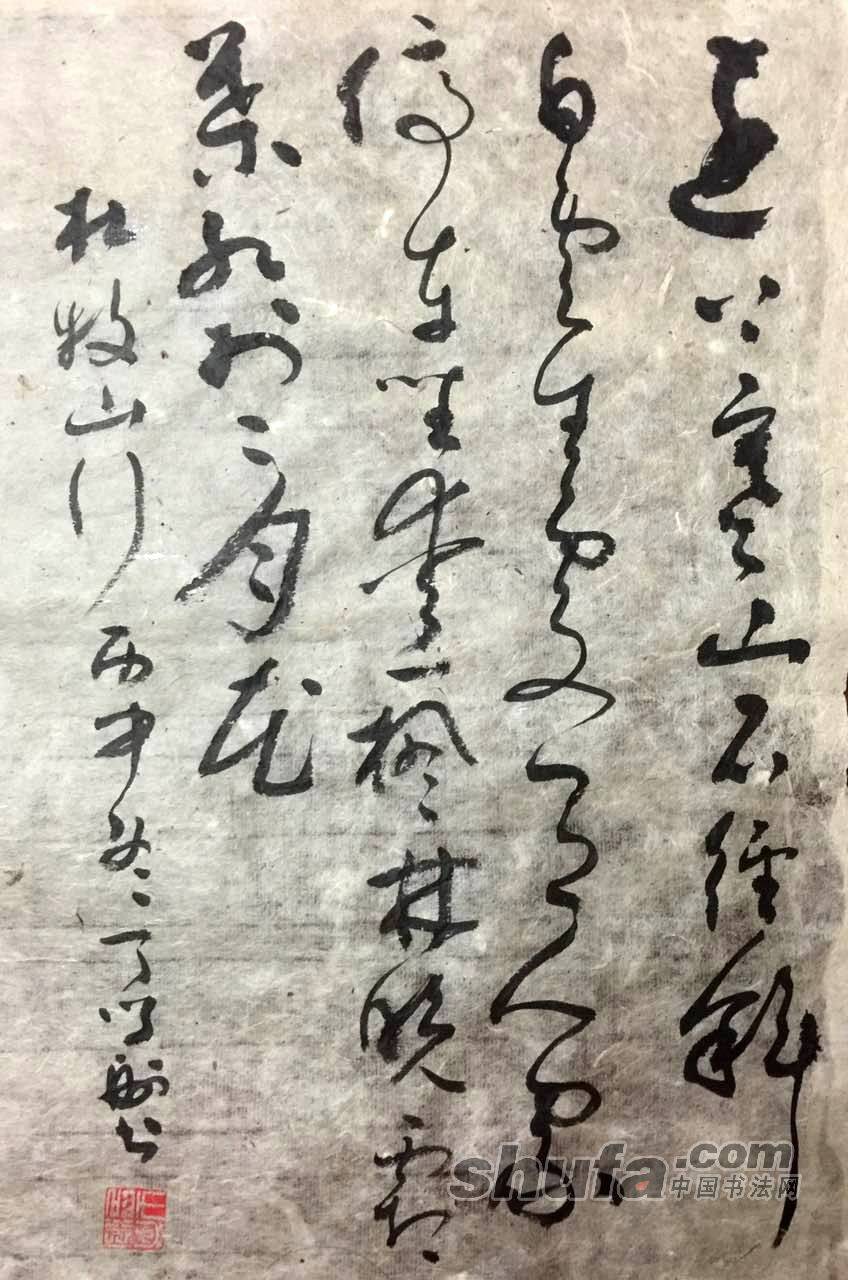 遠上寒山石徑斜
白雲生處有人家
停車坐愛楓林晚霜
葉紅於二月花
杜牧山行 丙申冬 书
shufa.com
中国书法网